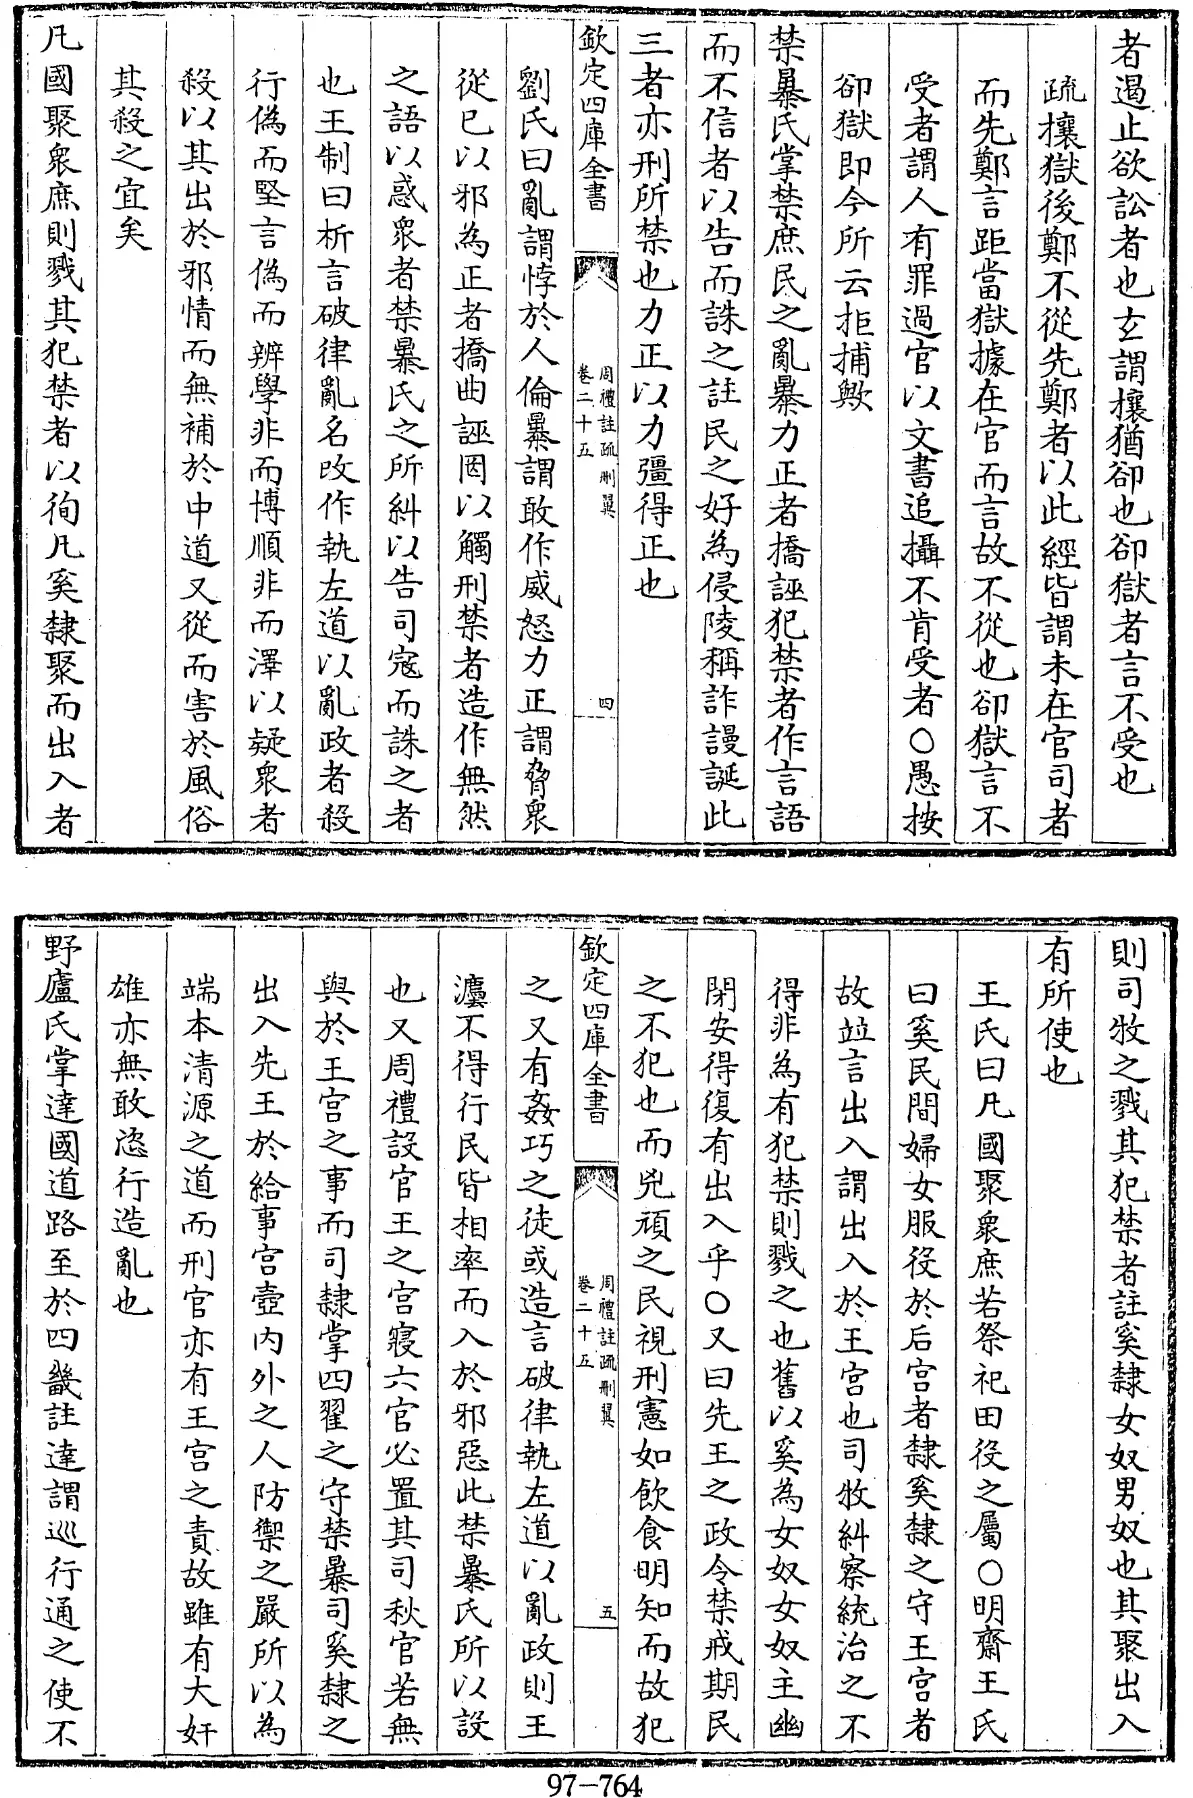 者遏止欲訟者也玄謂攘猶卻也卻獄者言不受也
疏攘獄後鄭不從先鄭者以此經皆謂未在官司者
而先鄭言距當獄據在官而言故不從也卻獄言不
受者謂人有罪過官以文書追攝不肯受者○愚按
卻獄即今所云拒捕歟
禁暴氏掌禁庶民之亂暴力正者撟誣犯禁者作言語
而不信者以告而誅之註民之好為侵陵稱詐謾誕此
三者亦刑所禁也力正以力彊得正也
欽定四庫全書
周禮註疏刪翼
卷二十五
四
劉氏曰亂謂悖於人倫暴謂敢作威怒力正謂脅衆
從已以邪為正者撟曲誣罔以觸刑禁者造作無然
之語以惑衆者禁暴氏之所糾以告司寇而誅之者
也王制曰析言破律亂名改作執左道以亂政者殺
行偽而堅言偽而辨學非而博順非而澤以疑衆者
殺以其出於邪情而無補於中道又從而害於風俗
其殺之宜矣
凡國聚衆庶則戮其犯禁者以徇凡奚隸聚而出入者
則司牧之戮其犯禁者註奚隸女奴男奴也其聚出入
有所使也
王氏曰凡國聚衆庶若祭祀田役之屬○明齋王氏
曰奚民間婦女服役於后宮者隸奚隸之守王宮者
故竝言出入謂出入於王宮也司牧糾察統治之不
得非為有犯禁則戮之也舊以奚為女奴女奴主幽
閉安得復有出入乎○又曰先王之政令禁戒期民
之不犯也而兇頑之民視刑憲如飲食明知而故犯
欽定四庫全書
周禮註疏刪翼
卷二十五
五
之又有姦巧之徒或造言破律執左道以亂政則王
灋不得行民皆相率而入於邪惡此禁暴氏所以設
也又周禮設官王之宮寢六官必置其司秋官若無
與於王宮之事而司隸掌四翟之守禁暴司奚隸之
出入先王於給事宮壼内外之人防禦之嚴所以為
端本清源之道而刑官亦有王宮之責故雖有大奸
雄亦無敢恣行造亂也
野廬氏掌達國道路至於四畿註達謂巡行通之使不
97-764